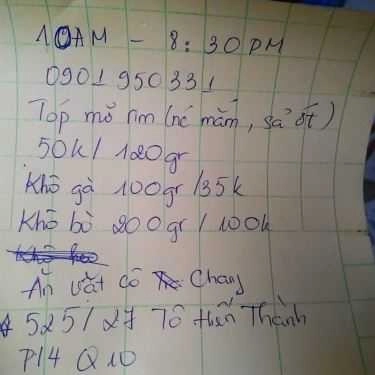 10AM - 8:30PM
0901950331
Tóp mỡ rim (nc mắm, sả ớt)
50k/120gr
Khô gà 100gr/35k
Khô bò 200gr/100k
Ăn vặt cô Chang
525/27 Tô Hiến Thành
P14 Q10